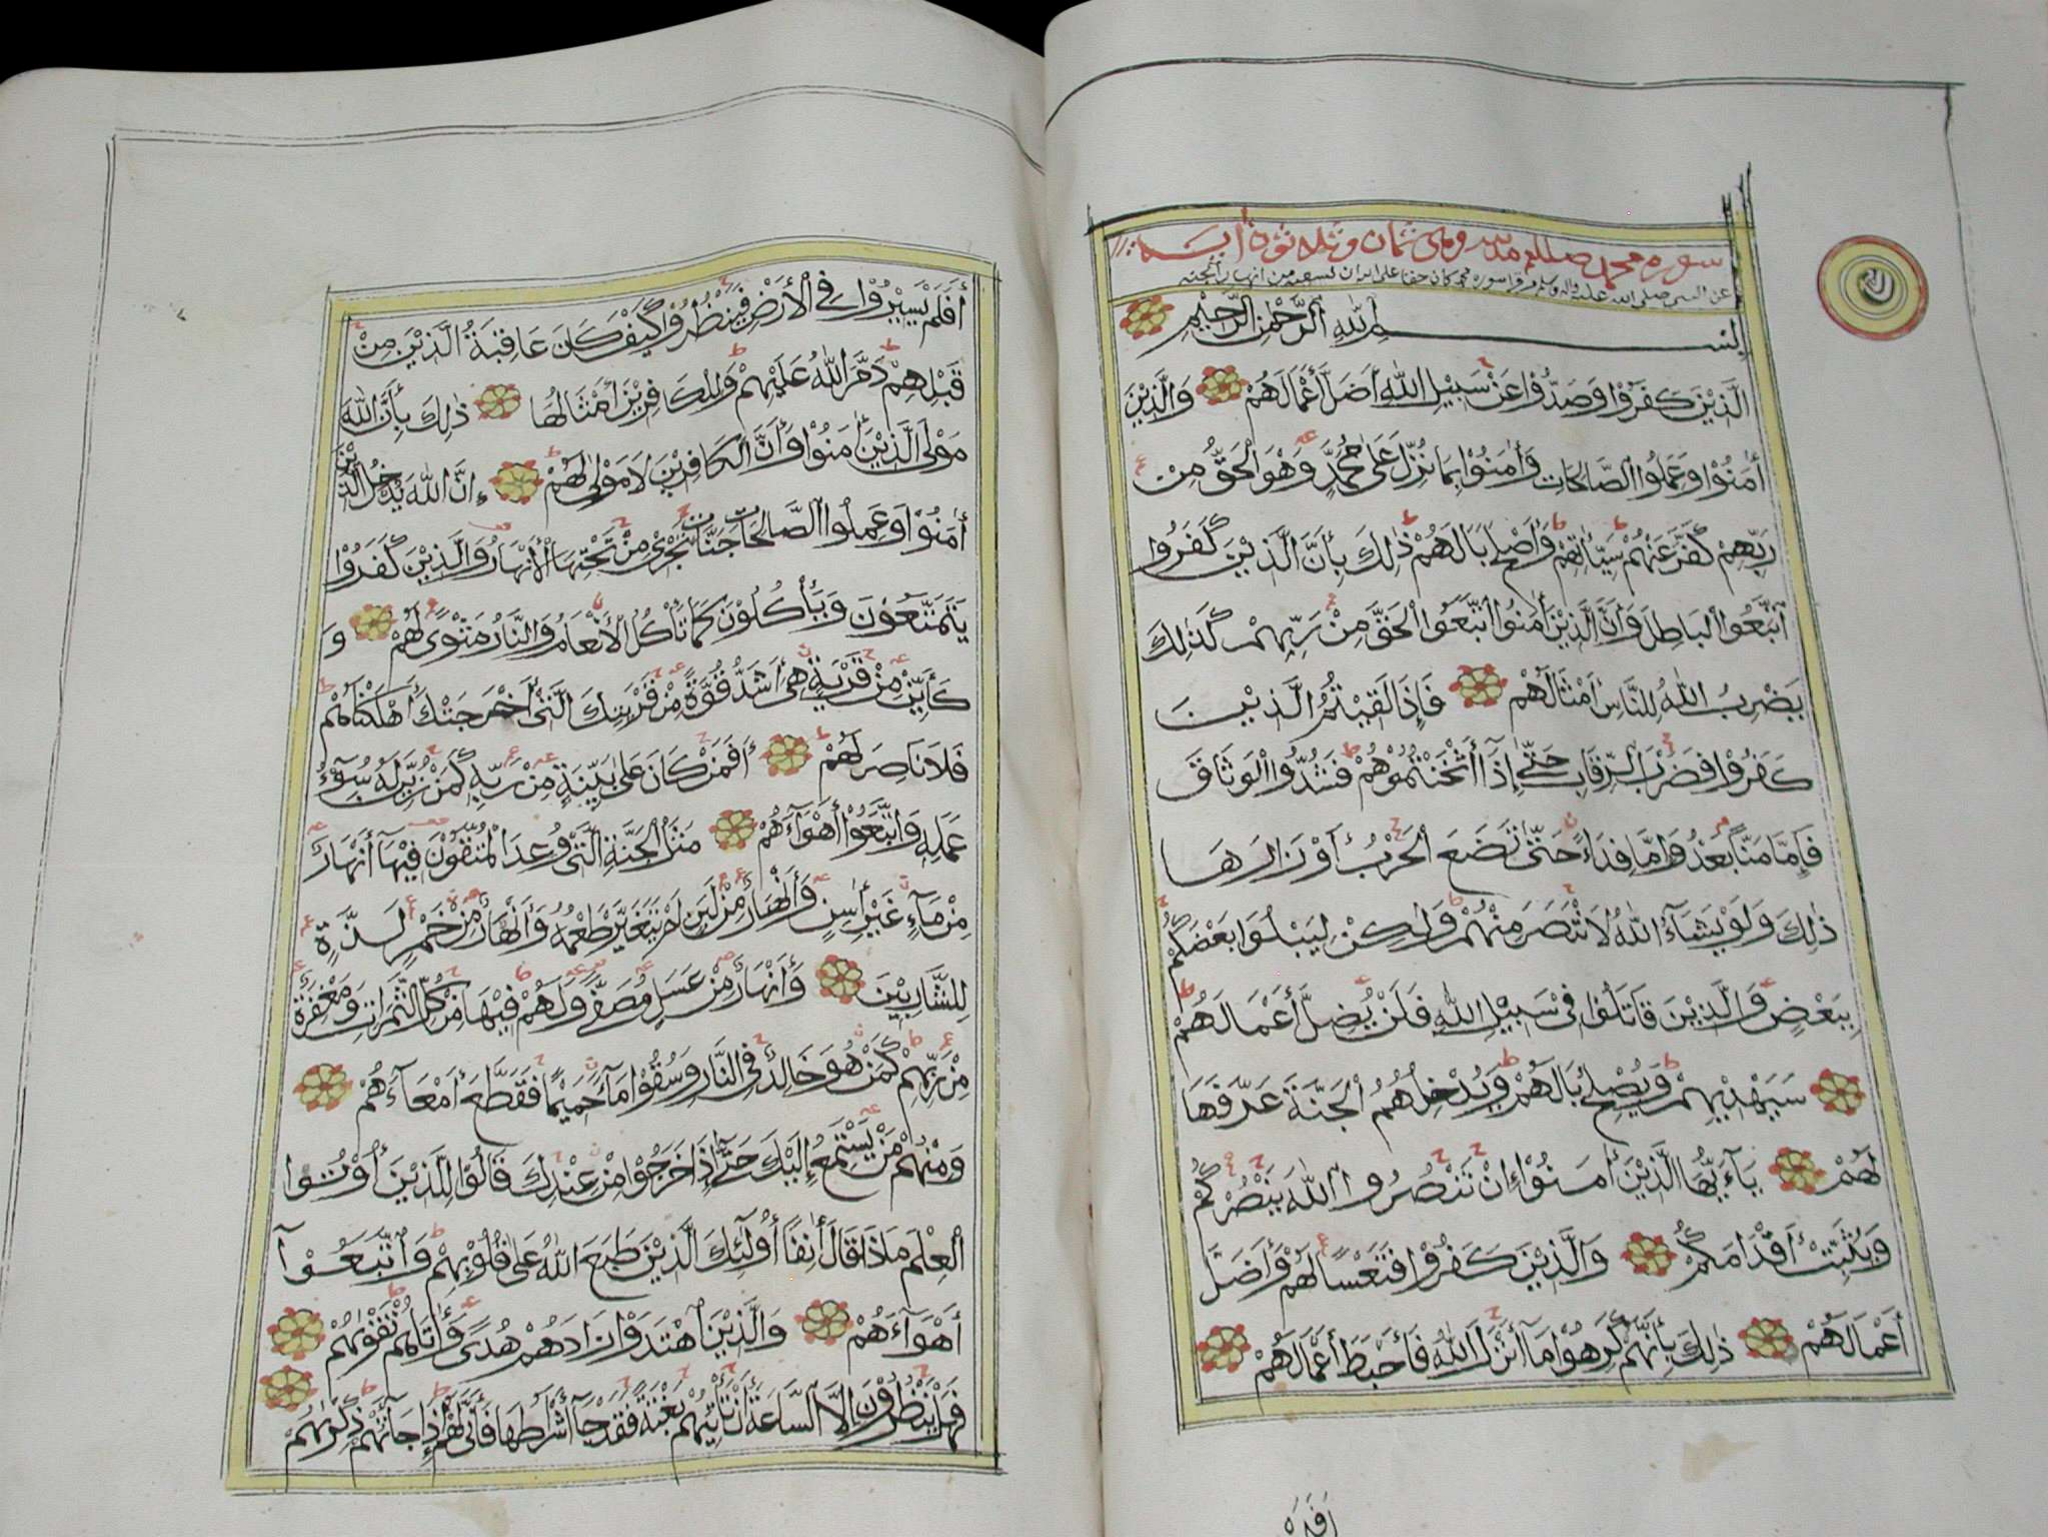 سورة محمد صلعم مدنية وهي ثمان وثلاثون آية
عن النبي صلى الله عليه واله وسلم من قرا سورة محمد كان حقا على الله ان يسقيه من انهار الجنة
بِسْمِ اللّٰهِ الرَّحْمٰنِ الرَّحِيْمِ
الَّذِيْنَ كَفَرُوْا وَصَدُّوْا عَنْ سَبِيْلِ اللّٰهِ أَضَلَّ أَعْمَالَهُمْ وَالَّذِيْنَ
أٰمَنُوْا وَعَمِلُوا الصَّالِحَاتِ وَأٰمَنُوْا بِمَا نُزِّلَ عَلٰى مُحَمَّدٍ وَهُوَ الْحَقُّ مِنْ
رَبِّهِمْ كَفَّرَ عَنْهُمْ سَيِّئَاتِهِمْ وَأَصْلَحَ بَالَهُمْ ذٰلِكَ بِأَنَّ الَّذِيْنَ كَفَرُوا
اتَّبَعُوا الْبَاطِلَ وَأَنَّ الَّذِيْنَ أٰمَنُوا اتَّبَعُوا الْحَقَّ مِنْ رَبِّهِمْ كَذٰلِكَ
يَضْرِبُ اللّٰهُ لِلنَّاسِ أَمْثَالَهُمْ فَإِذَا لَقِيْتُمُ الَّذِيْنَ
كَفَرُوْا فَضَرْبَ الرِّقَابِ حَتّٰى إِذَآ أَثْخَنْتُمُوْهُمْ فَشُدُّوا الْوَثَاقَ
فَإِمَّا مَنًّا بَعْدُ وَإِمَّا فِدَآءً حَتّٰى تَضَعَ الْحَرْبُ أَوْزَارَهَا
ذٰلِكَ وَلَوْ يَشَآءُ اللّٰهُ لَانْتَصَرَ مِنْهُمْ وَلٰكِنْ لِيَبْلُوَا بَعْضَكُمْ
بِبَعْضٍ وَالَّذِيْنَ قَاتَلُوْا فِيْ سَبِيْلِ اللّٰهِ فَلَنْ يُضِلَّ أَعْمَالَهُمْ
سَيَهْدِيْهِمْ وَيُصْلِحُ بَالَهُمْ وَيُدْخِلُهُمُ الْجَنَّةَ عَرَّفَهَا
لَهُمْ يَآءَيُّهَا الَّذِيْنَ أٰمَنُوْا إِنْ تَنْصُرُوا اللّٰهَ يَنْصُرْكُمْ
وَيُثَبِّتْ أَقْدَامَكُمْ وَالَّذِيْنَ كَفَرُوْا فَتَعْسًا لَهُمْ وَأَضَلَّ
أَعْمَالَهُمْ ذٰلِكَ بِأَنَّهُمْ كَرِهُوْا مَآ أَنْزَلَ اللّٰهُ فَأَحْبَطَ أَعْمَالَهُمْ
أَفَلَمْ يَسِيْرُوْا فِي الْأَرْضِ فَيَنْظُرُوْا كَيْفَ كَانَ عَاقِبَةُ الَّذِيْنَ مِنْ
قَبْلِهِمْ دَمَّرَ اللّٰهُ عَلَيْهِمْ وَلِلْكَافِرِيْنَ أَمْثَالُهَا ذٰلِكَ بِأَنَّ اللّٰهَ
مَوْلَى الَّذِيْنَ أٰمَنُوْا وَأَنَّ الْكَافِرِيْنَ لَا مَوْلٰى لَهُمْ إِنَّ اللّٰهَ يُدْخِلُ الَّذِيْنَ
أٰمَنُوْا وَعَمِلُوا الصَّالِحَاتِ جَنَّاتٍ تَجْرِيْ مِنْ تَحْتِهَا الْأَنْهَارُ وَالَّذِيْنَ كَفَرُوْا
يَتَمَتَّعُوْنَ وَيَأْكُلُوْنَ كَمَا تَأْكُلُ الْأَنْعَامُ وَالنَّارُ مَثْوًى لَهُمْ وَ
كَأَيِّنْ مِنْ قَرْيَةٍ هِيَ أَشَدُّ قُوَّةً مِنْ قَرْيَتِكَ الَّتِيْ أَخْرَجَتْكَ أَهْلَكْنَاهُمْ
فَلَا نَاصِرَ لَهُمْ أَفَمَنْ كَانَ عَلٰى بَيِّنَةٍ مِنْ رَبِّهِ كَمَنْ زُيِّنَ لَهُ سُوْٓءُ
عَمَلِهِ وَاتَّبَعُوْا أَهْوَآءَهُمْ مَثَلُ الْجَنَّةِ الَّتِيْ وُعِدَ الْمُتَّقُوْنَ فِيْهَآ أَنْهَارٌ
مِنْ مَآءٍ غَيْرِ أٰسِنٍ وَأَنْهَارٌ مِنْ لَبَنٍ لَمْ يَتَغَيَّرْ طَعْمُهُ وَأَنْهَارٌ مِنْ خَمْرٍ لَذَّةٍ
لِلشَّارِبِيْنَ وَأَنْهَارٌ مِنْ عَسَلٍ مُصَفًّى وَلَهُمْ فِيْهَا مِنْ كُلِّ الثَّمَرَاتِ وَمَغْفِرَةٌ
مِنْ رَبِّهِمْ كَمَنْ هُوَ خَالِدٌ فِي النَّارِ وَسُقُوْا مَآءً حَمِيْمًا فَقَطَّعَ أَمْعَآءَهُمْ
وَمِنْهُمْ مَنْ يَسْتَمِعُ إِلَيْكَ حَتّٰى إِذَا خَرَجُوْا مِنْ عِنْدِكَ قَالُوْا لِلَّذِيْنَ أُوْتُوا
الْعِلْمَ مَاذَا قَالَ أٰنِفًا أُولٰٓئِكَ الَّذِيْنَ طَبَعَ اللّٰهُ عَلٰى قُلُوْبِهِمْ وَاتَّبَعُوْآ
أَهْوَآءَهُمْ وَالَّذِيْنَ اهْتَدَوْا زَادَهُمْ هُدًى وَأٰتَاهُمْ تَقْوٰىهُمْ
فَهَلْ يَنْظُرُوْنَ إِلَّا السَّاعَةَ أَنْ تَأْتِيَهُمْ بَغْتَةً فَقَدْ جَآءَ أَشْرَاطُهَا فَأَنّٰى لَهُمْ إِذَا جَآءَتْهُمْ ذِكْرٰىهُمْ